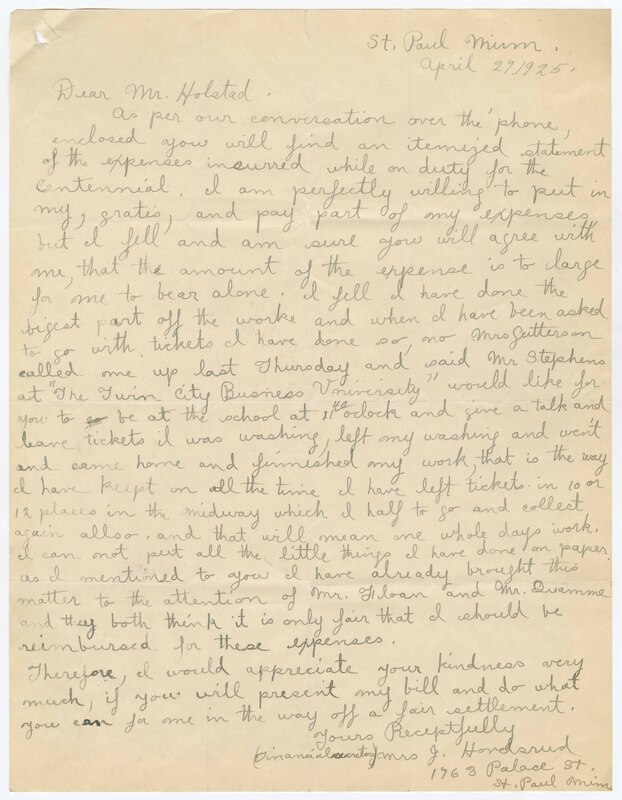 St. Paul Minn.
April 27, 1925.
Dear Mr. Holstad.
As per our conversation over the 'phone,
enclosed you will find an itemized statement
of the expenses incurred while on duty for the
Centennial. I am perfectly willing to put in
my, gratis, and pay part of my expenses
but I fell and am sure you will agree with
me, that the amount of the expense is to large
for me to bear alone. I fell I have done the
bigest part off the worke and when I have been asked
to go with tickets I have done so, no Mrs Gutterson
called me up last Thursday and said Mr Stephens
at "The Twin City Business Univirsity" would like for
you to be at the school at 11 oclock and give a talk and
leave tickets I was washing, left my washing and went
and came home and finnished my work, that is the way
I have keept on all the time I have left tickets in 10 or
12 places in the midway which I half to go and collect
again allso. and that will mean one whole days work.
I can not put all the little things I have done on paper.
as I mentioned to you I have already brought this
matter to the attention of Mr. Floan and Mr. Quamme
and they both think it is only fair that I should be
reimbursed for these expenses.
Therefore, I would appreciate your kindness very
much, if you will present my bill and do what
you can for me in the way off a fair settlement.
Yours Receptfully
(Financial secretary) Mrs J. Hovelsrud
1763 Palace St.
St. Paul Minn